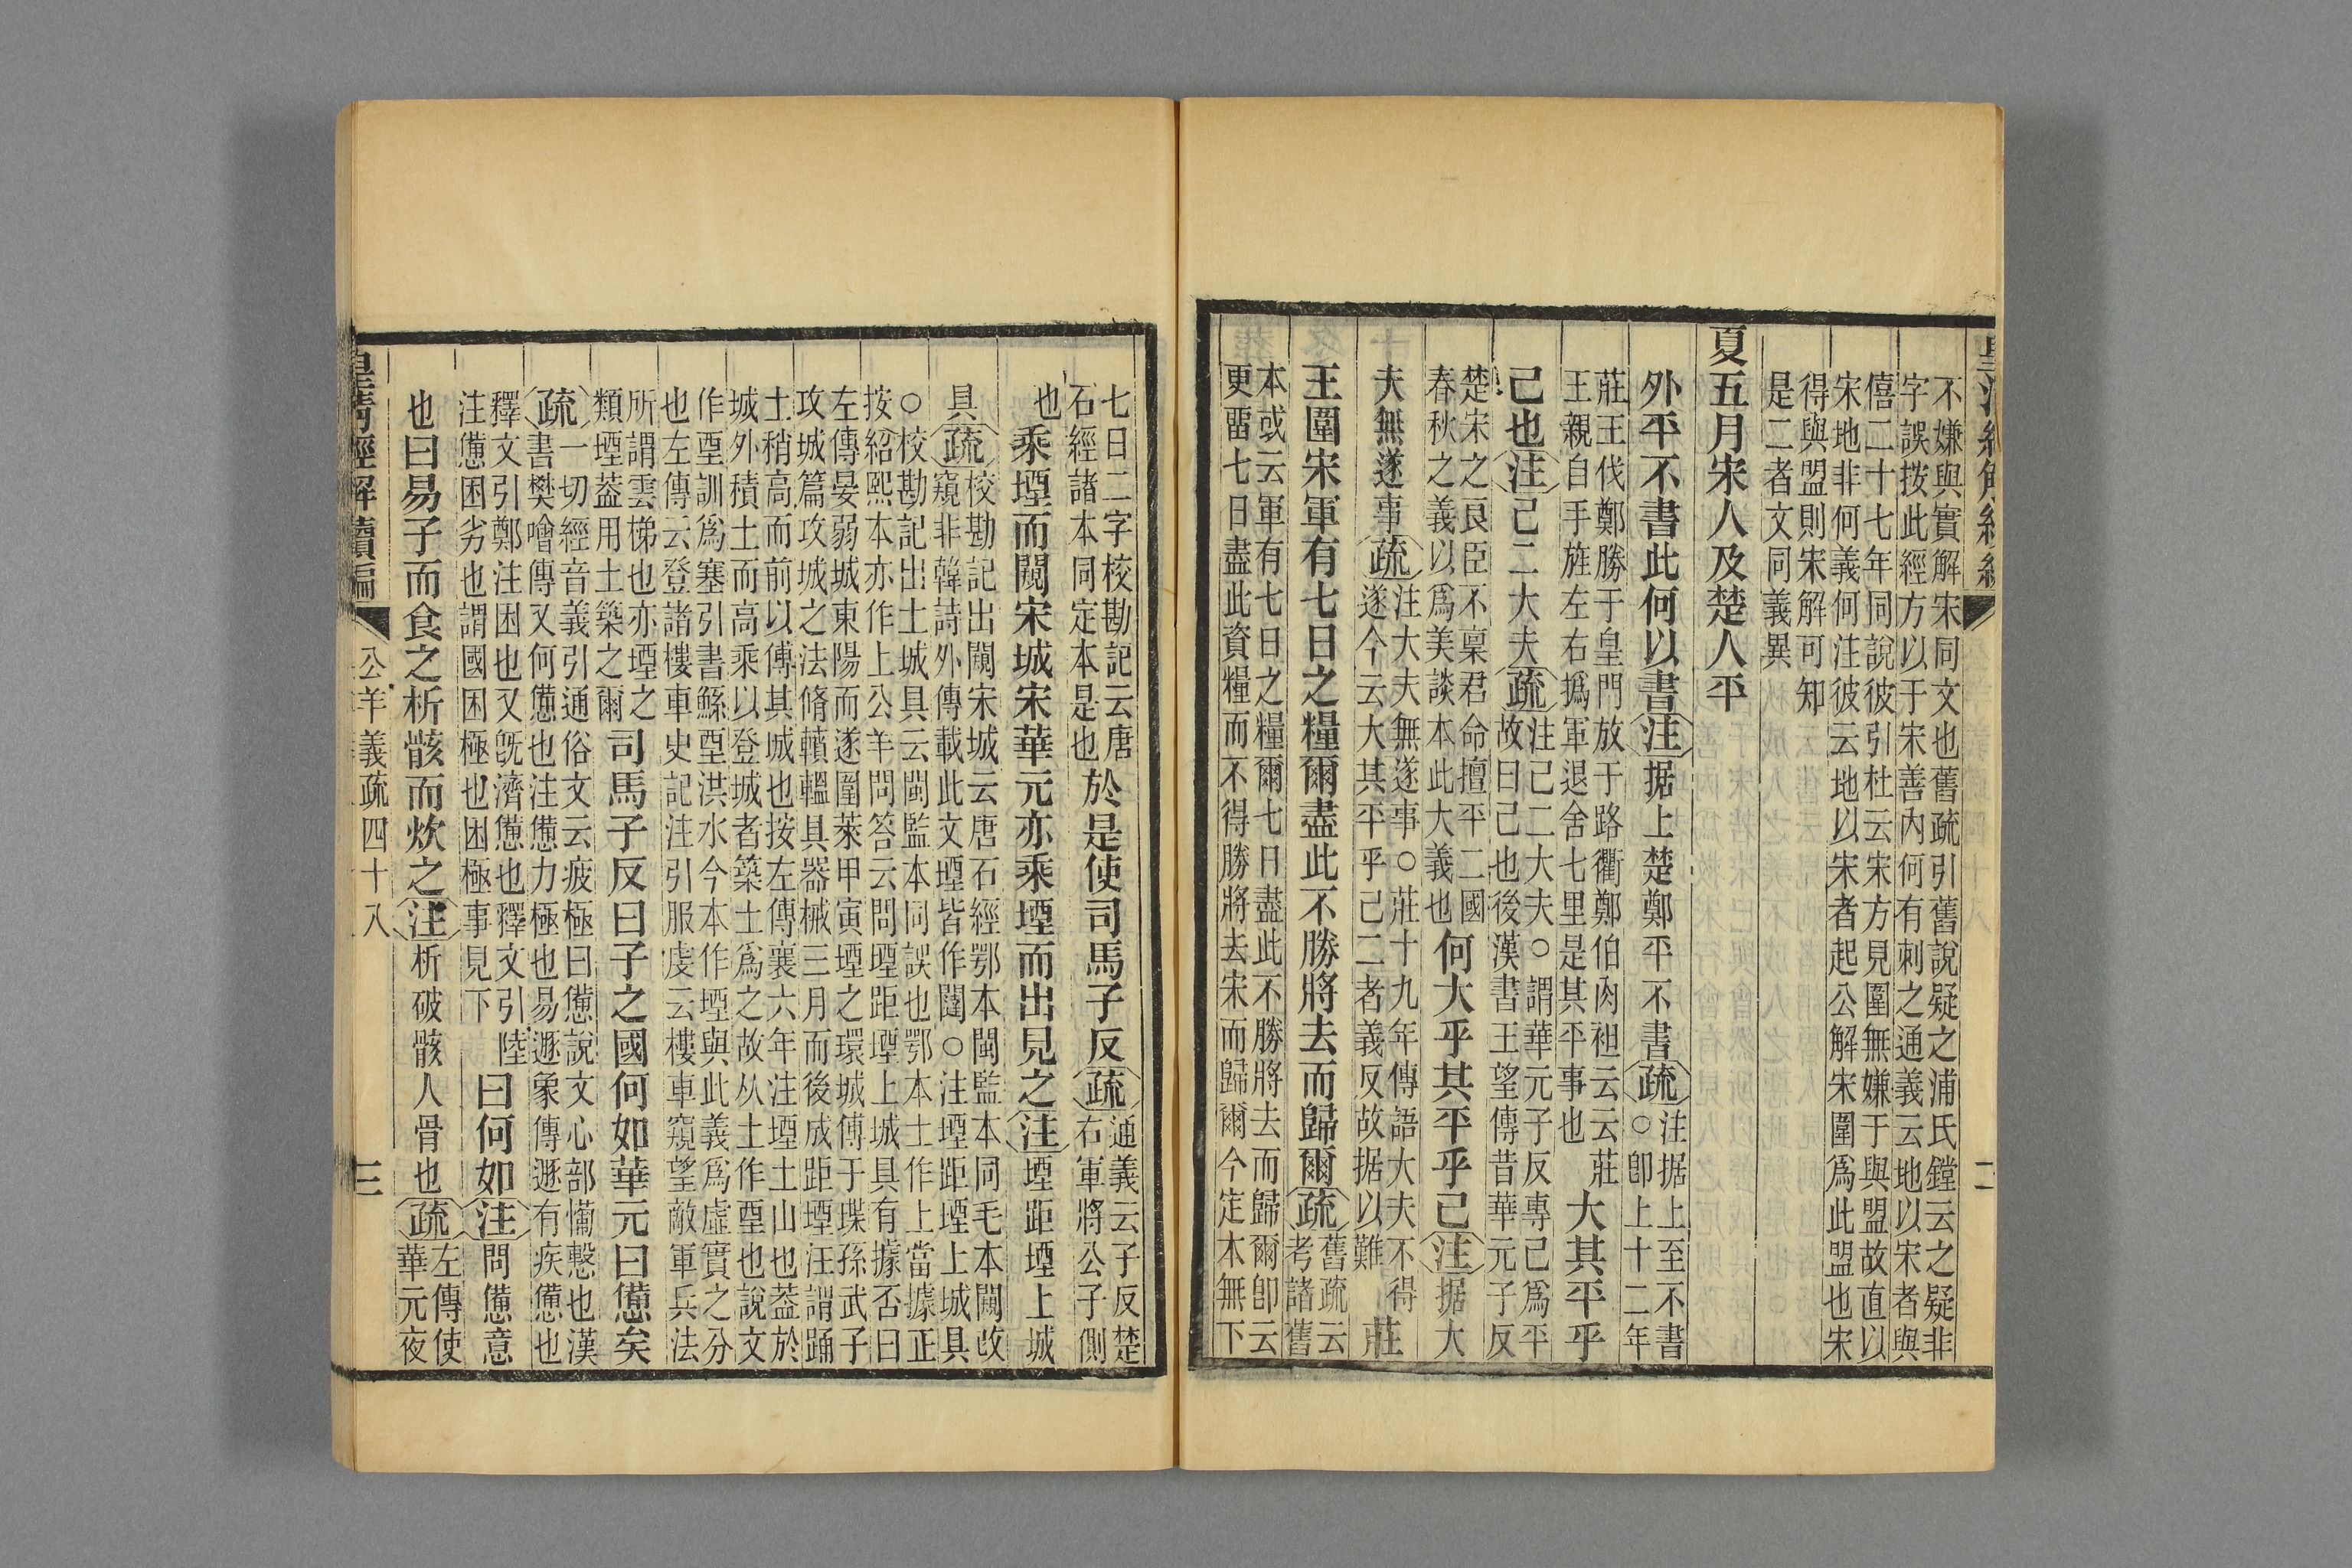 不嫌與實解宋同文也舊疏引舊說疑之浦氏鏜云之疑非
字誤按此經方以于宋善內何有刺之通義云地以宋者與
僖二十七年同說彼引杜云宋方見圍無嫌于與盟故直以
宋地非何義何注彼云地以宋者起公解宋圍爲此盟也宋
得與盟則宋解可知
是二者文同義異
夏五月宋人及楚人平
外平不書此何以書注据上楚鄭平不書疏注据上至不書
○卽上十二年
莊王伐鄭勝于皇門放于路衢鄭伯肉袒云云莊
王親自手旌左右撝軍退舍七里是其平事也
大其平乎
己也注己二大夫疏注己二大夫○謂華元子反專己爲平
故曰己也後漢書王望傳昔華元子反
楚宋之良臣不稟君命擅平二國
春秋之義以爲美談本此大義也
何大乎其平乎己注据大
夫無遂事疏注大夫無遂事○莊十九年傳語大夫不得
遂今云大其平乎己二者義反故据以難
莊
王圍宋軍有七日之糧爾盡此不勝將去而歸爾疏舊疏云
考諸舊
本或云軍有七日之糧爾七日盡此不勝將去而歸爾卽云
更畱七日盡此資糧而不得勝將去宋而歸爾今定本無下
二
七日二字校勘記云唐
石經諸本同定本是也
於是使司馬子反疏通義云子反楚
右軍將公子側
也乘堙而闚宋城宋華元亦乘堙而出見之注堙距堙上城
具疏校勘記出闚宋城云唐石經鄂本閩監本同毛本闚改
窺非韓詩外傳載此文堙皆作闉○注堙距堙上城具
○校勘記出土城具云閩監本同誤也鄂本土作上當據正
按紹熙本亦作上公羊問答云問堙距堙上城具有據否曰
左傳晏弱城東陽而遂圍萊甲寅堙之環城傅于堞孫武子
攻城篇攻城之法脩轒轀具器械三月而後成距堙汪謂踊
土稍高而前以傅其城也按左傳襄六年注堙土山也葢於
城外積土而高乘以登城者築土爲之故从土作垔也說文
作垔訓爲塞引書鯀垔洪水今本作堙與此義爲虛實之分
也左傳云登諸樓車史記注引服虔云樓車窺望敵軍兵法
所謂雲梯也亦堙之
類堙葢用土築之爾
司馬子反曰子之國何如華元曰憊矣
疏一切經音義引通俗文云疲極曰憊說文心部憊也漢
書樊噲傳又何憊也注憊力極也易遯象傳遯有疾憊也
釋文引鄭注困也又旣濟憊也釋文引陸
注憊困劣也謂國困極也困極事見下
曰何如注問憊意
也曰易子而食之析骸而炊之注析破骸人骨也疏左傳使
華元夜
皇清經解續編
公羊義疏四十八
三